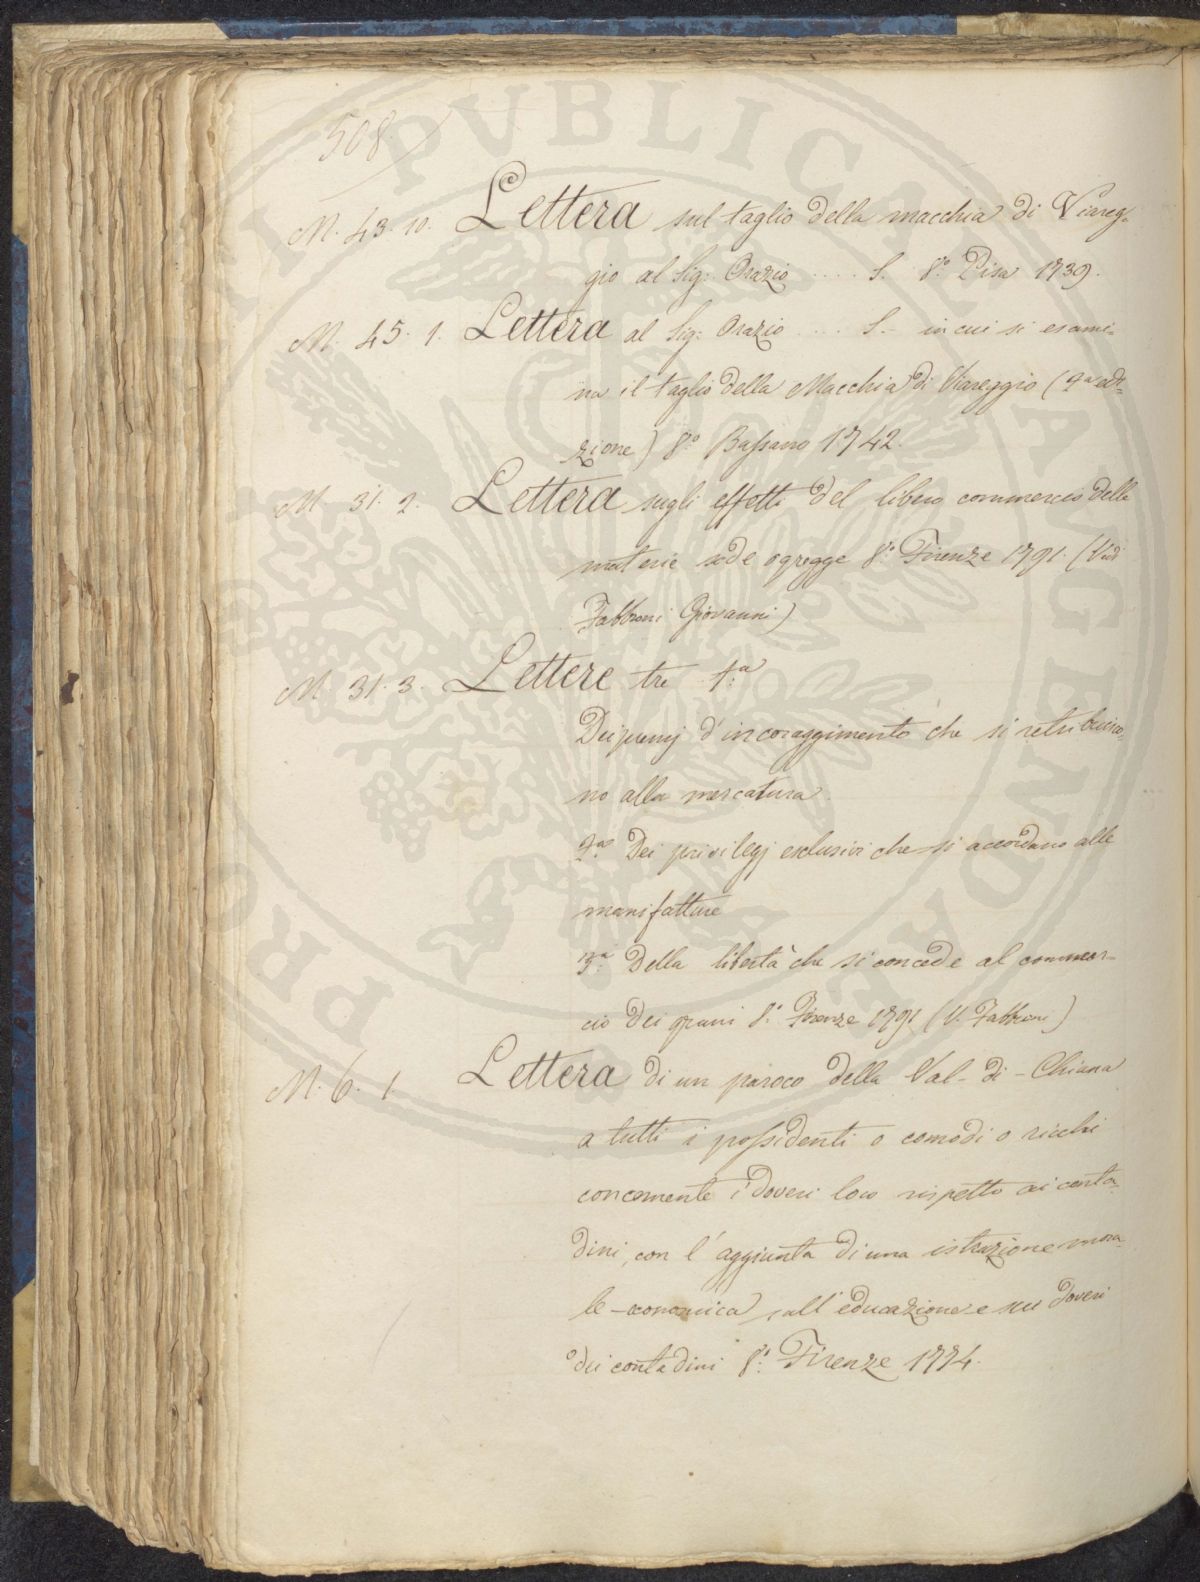 508
M. 43. 10. Lettera sul taglio della macchia di Viareg-
gio al Sig: Orazio ..... S. 8.° Pisa 1739.
M. 45. 1. Lettera al Sig: Orazio .... S. in cui si esami-
na il taglio della Macchia di Viareggio (2a edi-
zione) 8° Bassano 1742.
M. 31. 2. Lettera sugli effetti del libero commercio delle
materie sode o gregge 8.° Firenze 1791. (Vedi
Fabbroni Giovanni)
M. 31. 3. Lettere tre 1.a
Dei premj d'incoraggimento che si retribuisco-
no alla mercatura.
2.a Dei privilegj esclusivi che si accordano alle
manifatture
3.a Della libertà che si concede al commer-
cio dei grani 8.° Firenze 1791 (V. Fabbroni)
M. 6. 1. Lettera di un paroco della Val-di-Chiana
a tutti i possidenti o comodi o ricchi
concernente i doveri loro rispetto ai conta-
dini, con l'aggiunta di una istruzione mora-
le-economica sull'educazione e sui doveri
dei contadini 8.° Firenze 1774.
PRO PVBLICA AVGENDO